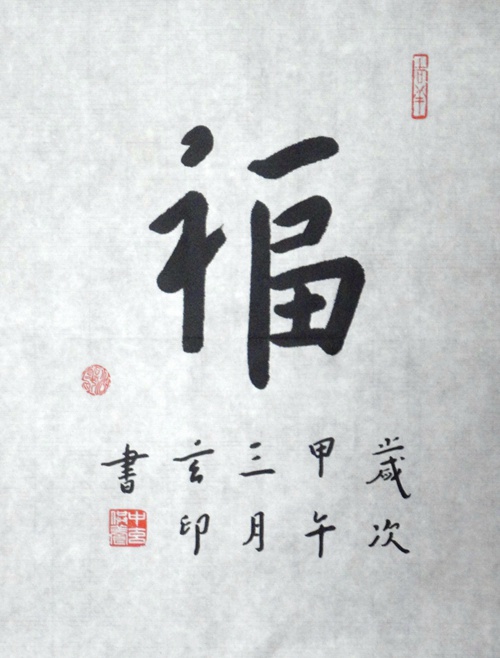 福
歲次
甲午
三月
玄印
書